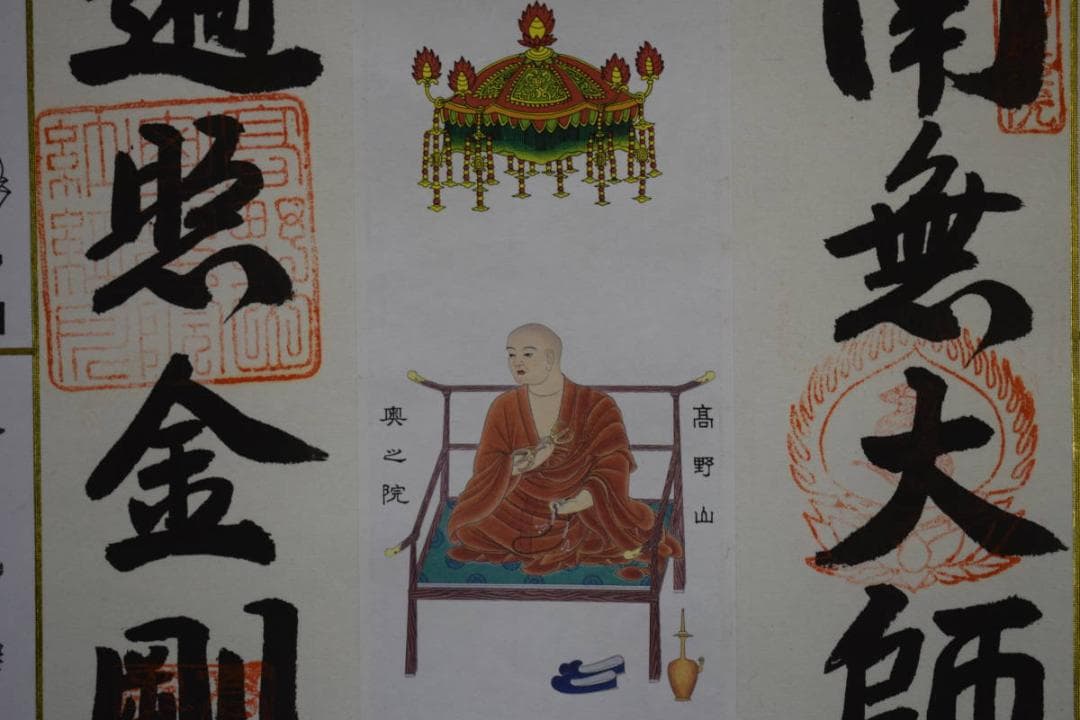 南無大師
髙野山
奥之院
遍照金剛